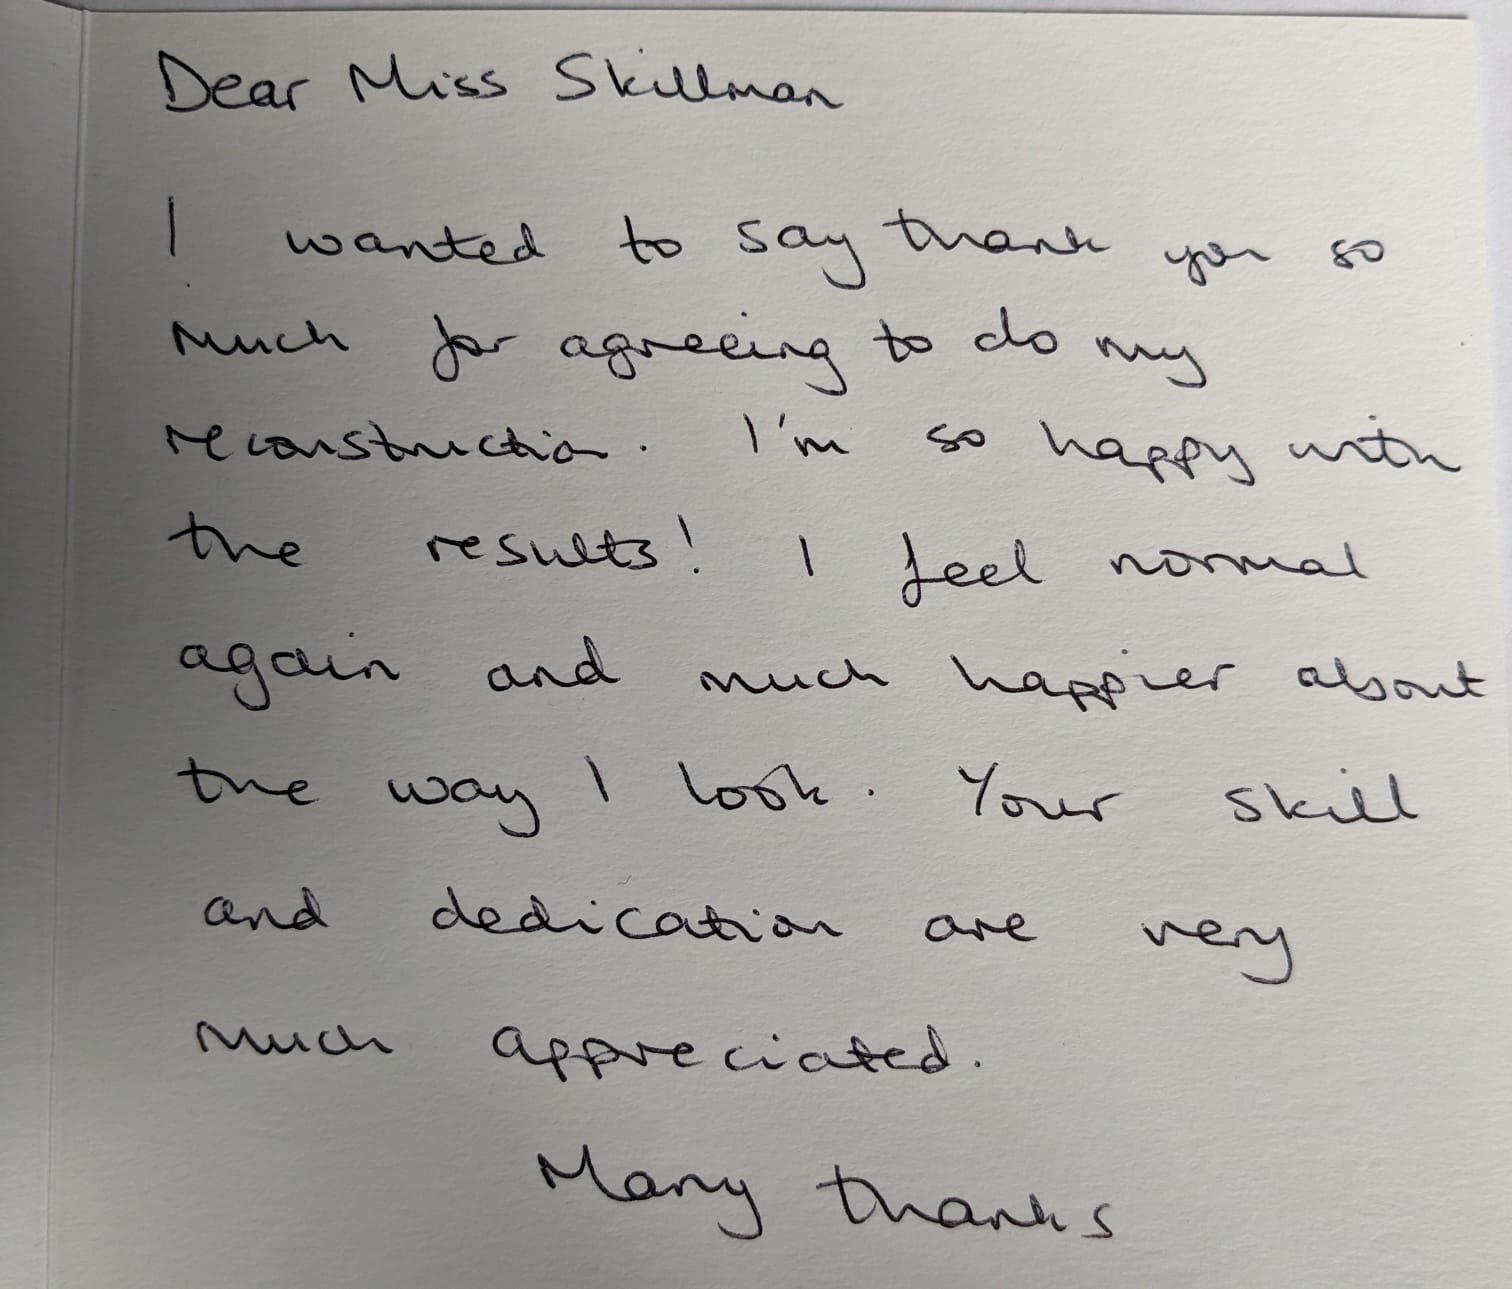 Dear Miss Skillman
I wanted to say thank you so
much for agreeing to do my
reconstruction. I'm so happy with
the results! I feel normal
again and much happier about
the way I look. Your skill
and dedication are very
much appreciated.
Many thanks